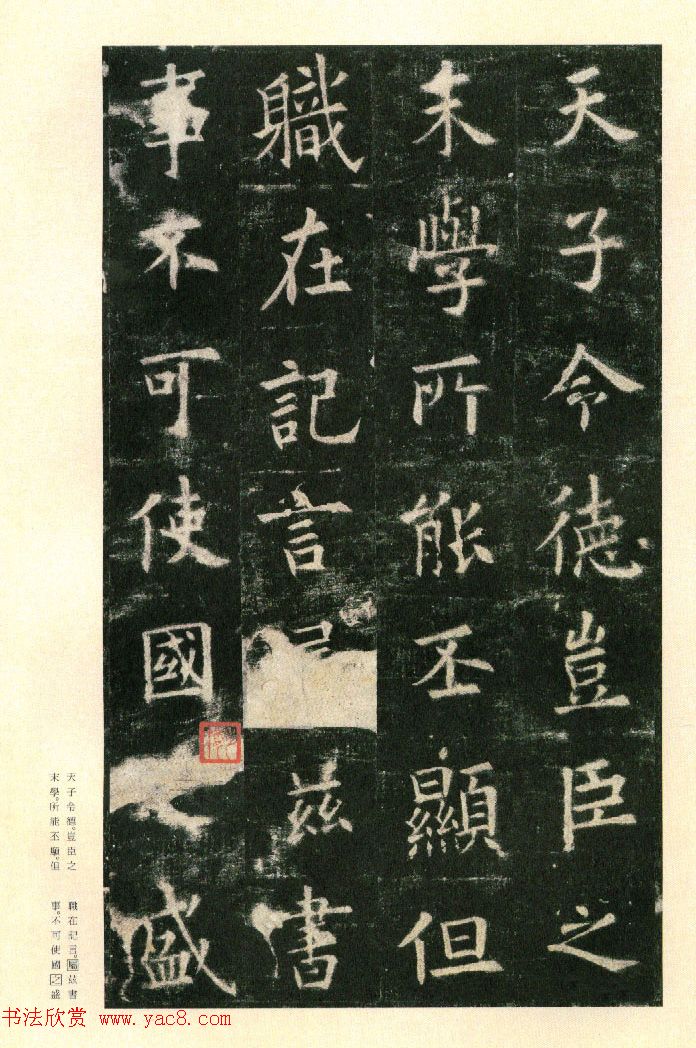 天子令德豈臣之
末學所能丕顯但
職在記言茲書
事不可使國盛
天子令德。豈臣之
末學。所能丕顯。但
職在記言。屬茲書
事。不可使國之盛
书法欣赏 www.yac8.com